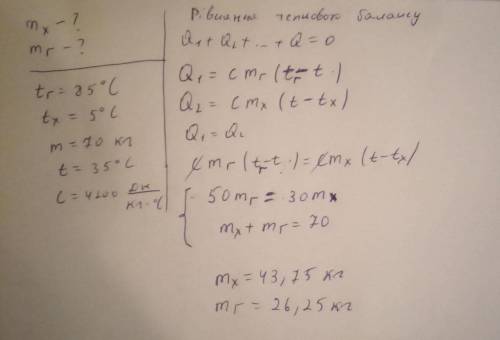 mх – ?
mг – ?
tг = 85°C
tх = 5°C
m = 70 кг
t = 35°C
C = 4200 Дж/кг·°C
Рівняння теплового балансу
Q₁ + Q₂ + ... + Q = 0
Q₁ = c mг (tг – t)
Q₂ = c mх (t – tх)
Q₁ = Q₂
c mг (tг – t) = c mх (t – tх)
50mг = 30mх
mх + mг = 70
mх = 43,75 кг
mг = 26,25 кг